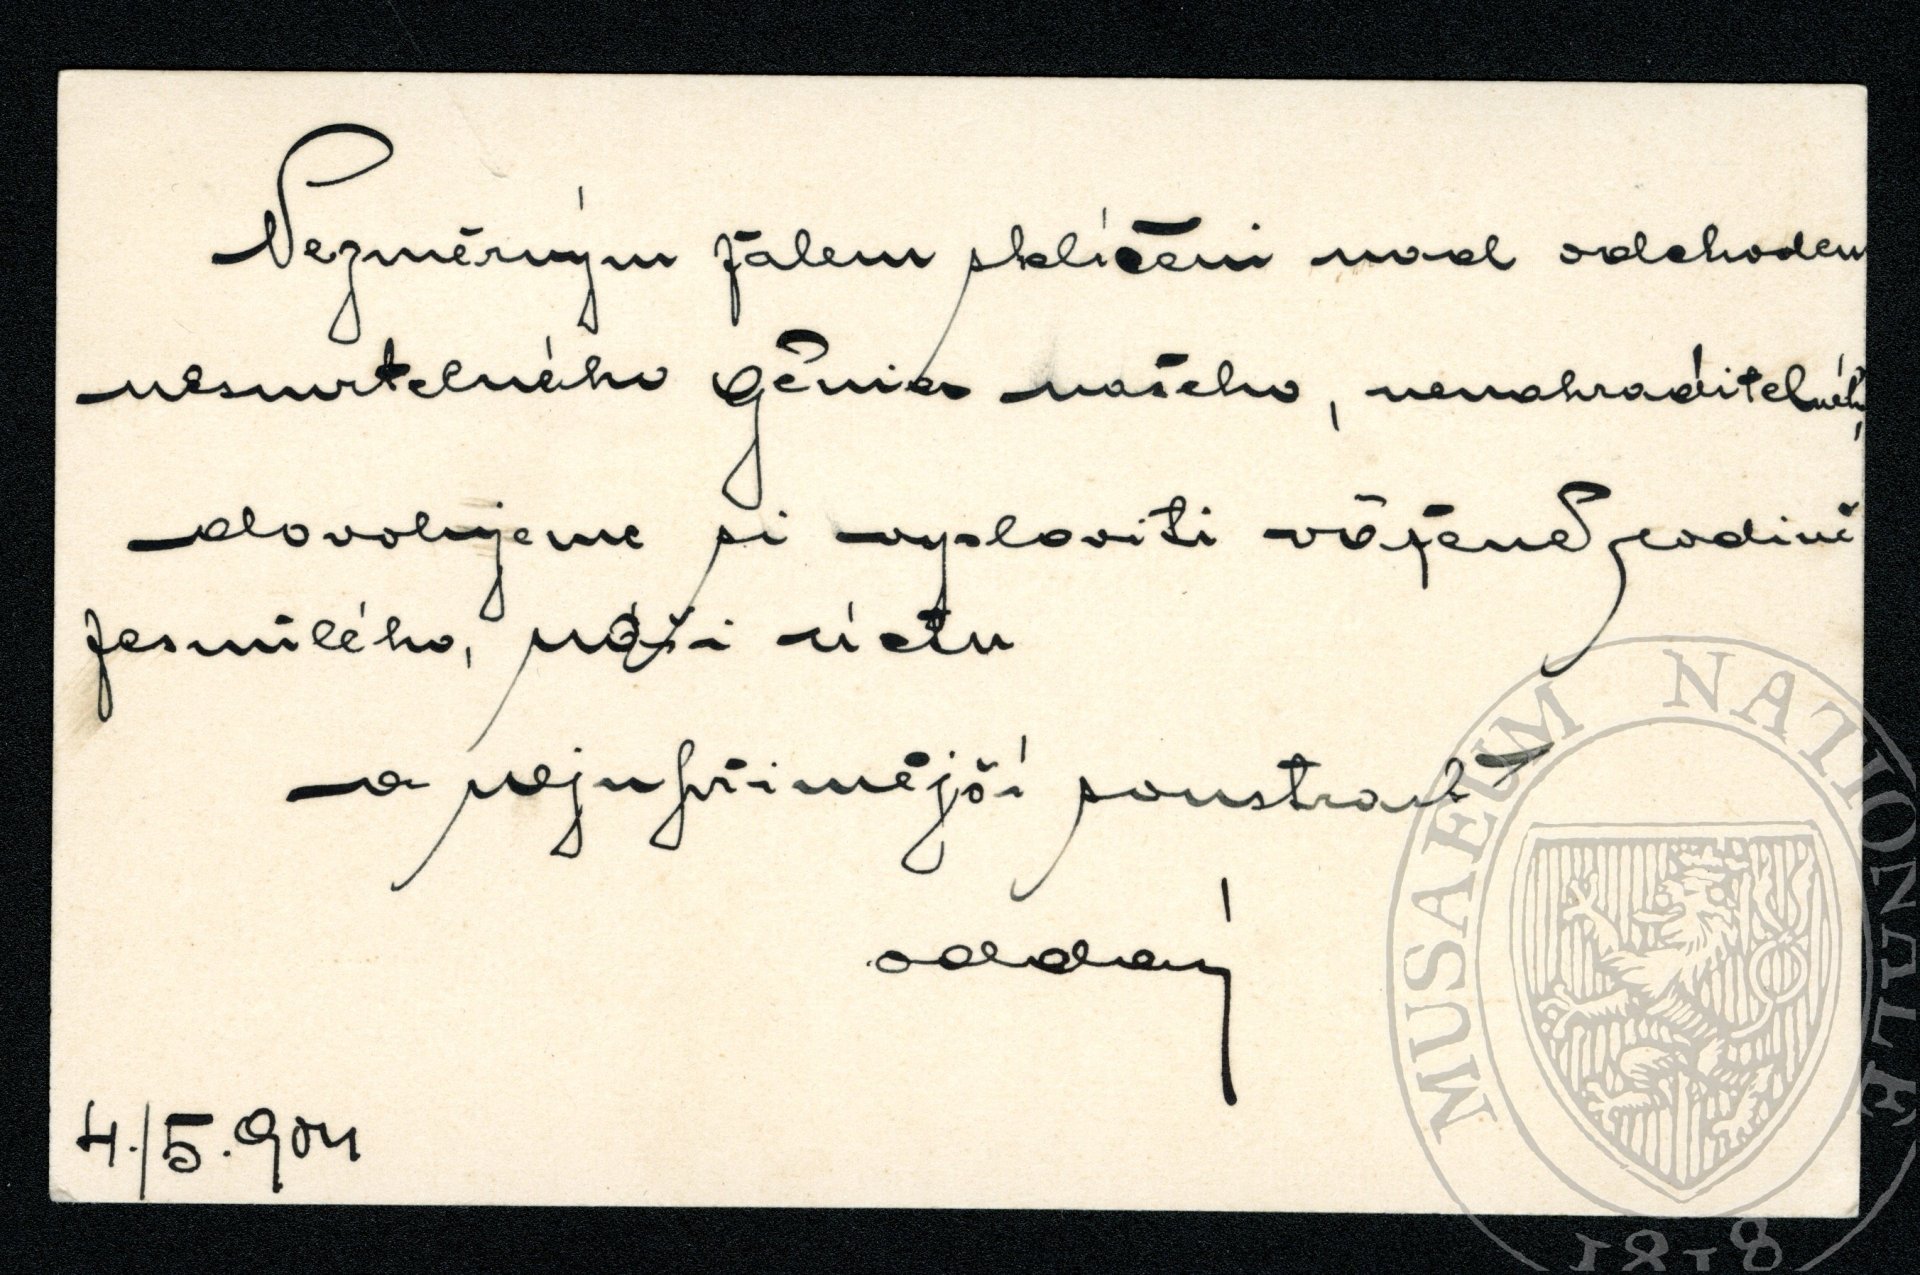 Nezměrným žalem sklíčeni nad odchodem
nesmrtelného génia našeho, nenahraditelného,
dovolujeme si vysloviti vážené rodině
zesnulého, naši úctu
a nejupřímější soustrast
oddaný
4./5.904
MUSAEUM NATIONALE
1818